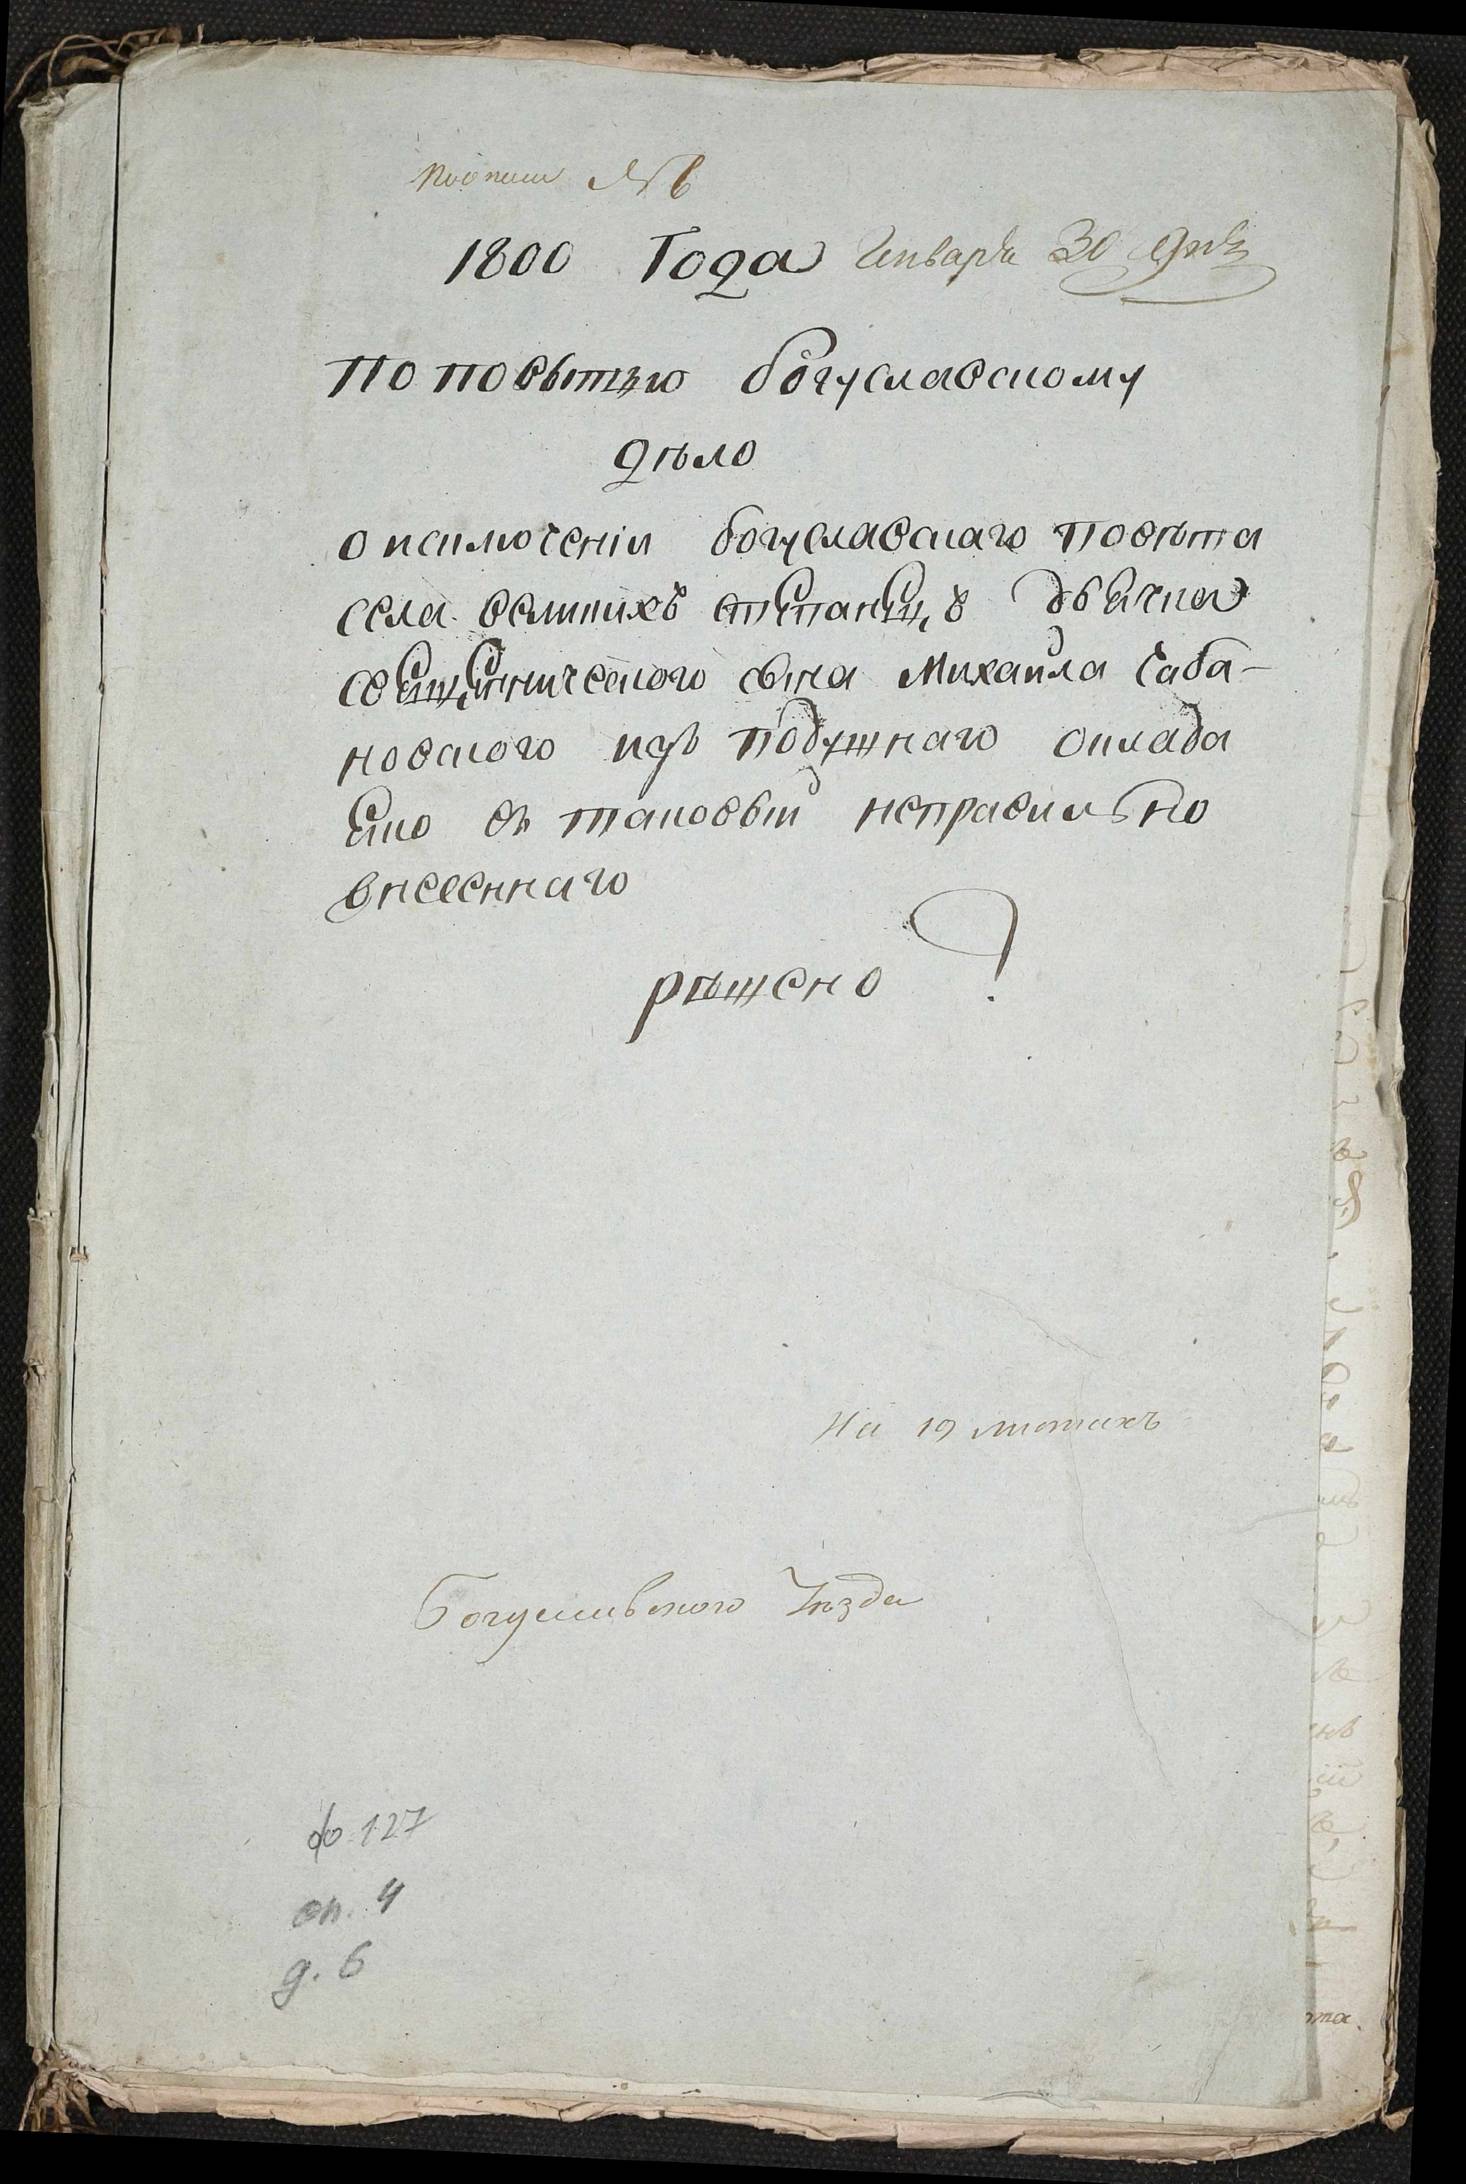 По описи № 6
1800 Года Генваря 30 дня
по повытью богуславскому
дѣло
о исключеніи богуславскаго повѣта
села великихъ степанецъ дьячка
священническаго сына Михаила Саба-
новского изъ подушнаго оклада
яко въ таковый неправильно
внесеннаго
рѣшено
На 19 листахъ
Богуславского Уѣзда
ф 127
оп. 4
д. 6